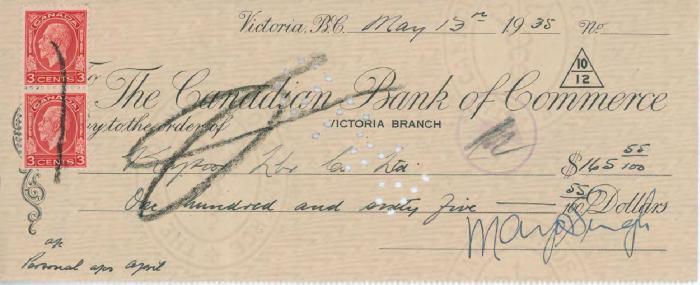 Victoria, B.C. May 13th 1935 No
CANADA
3 CENTS 3
10
12
To The Canadian Bank of Commerce
VICTORIA BRANCH
Pay to the order of
CANADA
3 CENTS 3
Lbr Co. Ltd. $165 55/100
One hundred and sixty five 55/100 Dollars
Mayo Singh
a/c
Personal a/c April